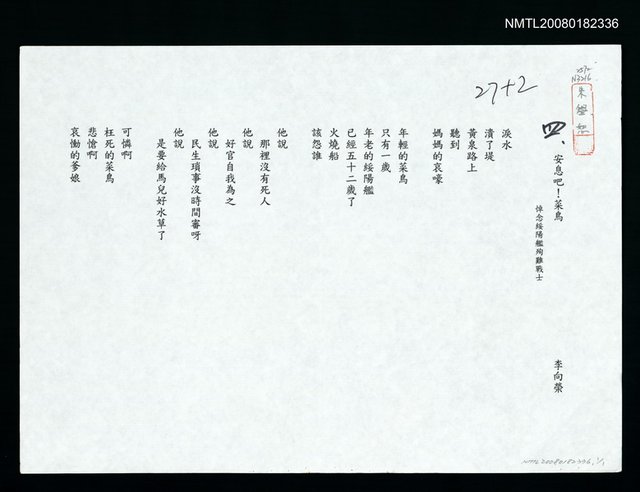 NMTL20080182336
27+2
四、安息吧！菜鳥
悼念綏陽艦殉難戰士
李向榮
淚水
潰了堤
黃泉路上
聽到
媽媽的哀嚎
年輕的菜鳥
只有一歲
年老的綏陽艦
已經五十二歲了
火燒船
該怨誰
他說
那裡沒有死人
他說
好官自我為之
他說
民生瑣事沒時間審呀
他說
是要給馬兒好水草了
可憐啊
枉死的菜鳥
悲愴啊
哀慟的爹娘
NMTL20080182336, 1/1